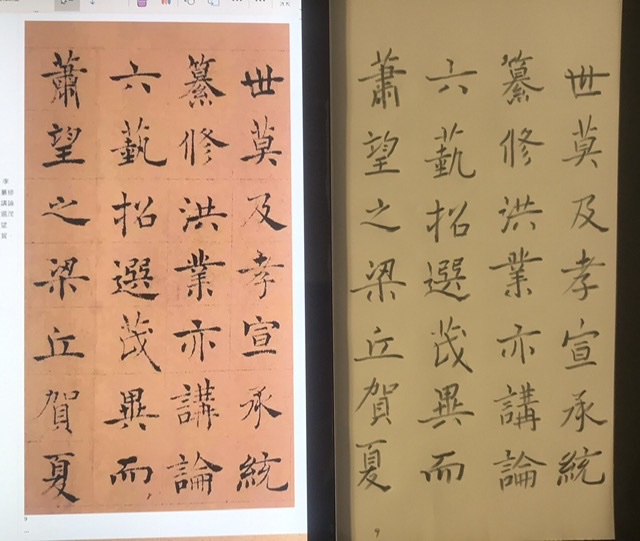 世莫及孝宣承統
纂修洪業亦講論
六藝招選茂異而
蕭望之梁丘賀夏
9
世莫及孝宣承統
纂修洪業亦講論
六藝招選茂異而
蕭望之梁丘賀夏
9